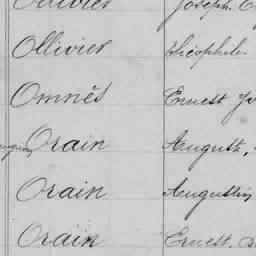 Ollivier Joseph
Ollivier Théophile
Omnès Ernest
Orain August,
Orain Augustin
Orain Ernest.